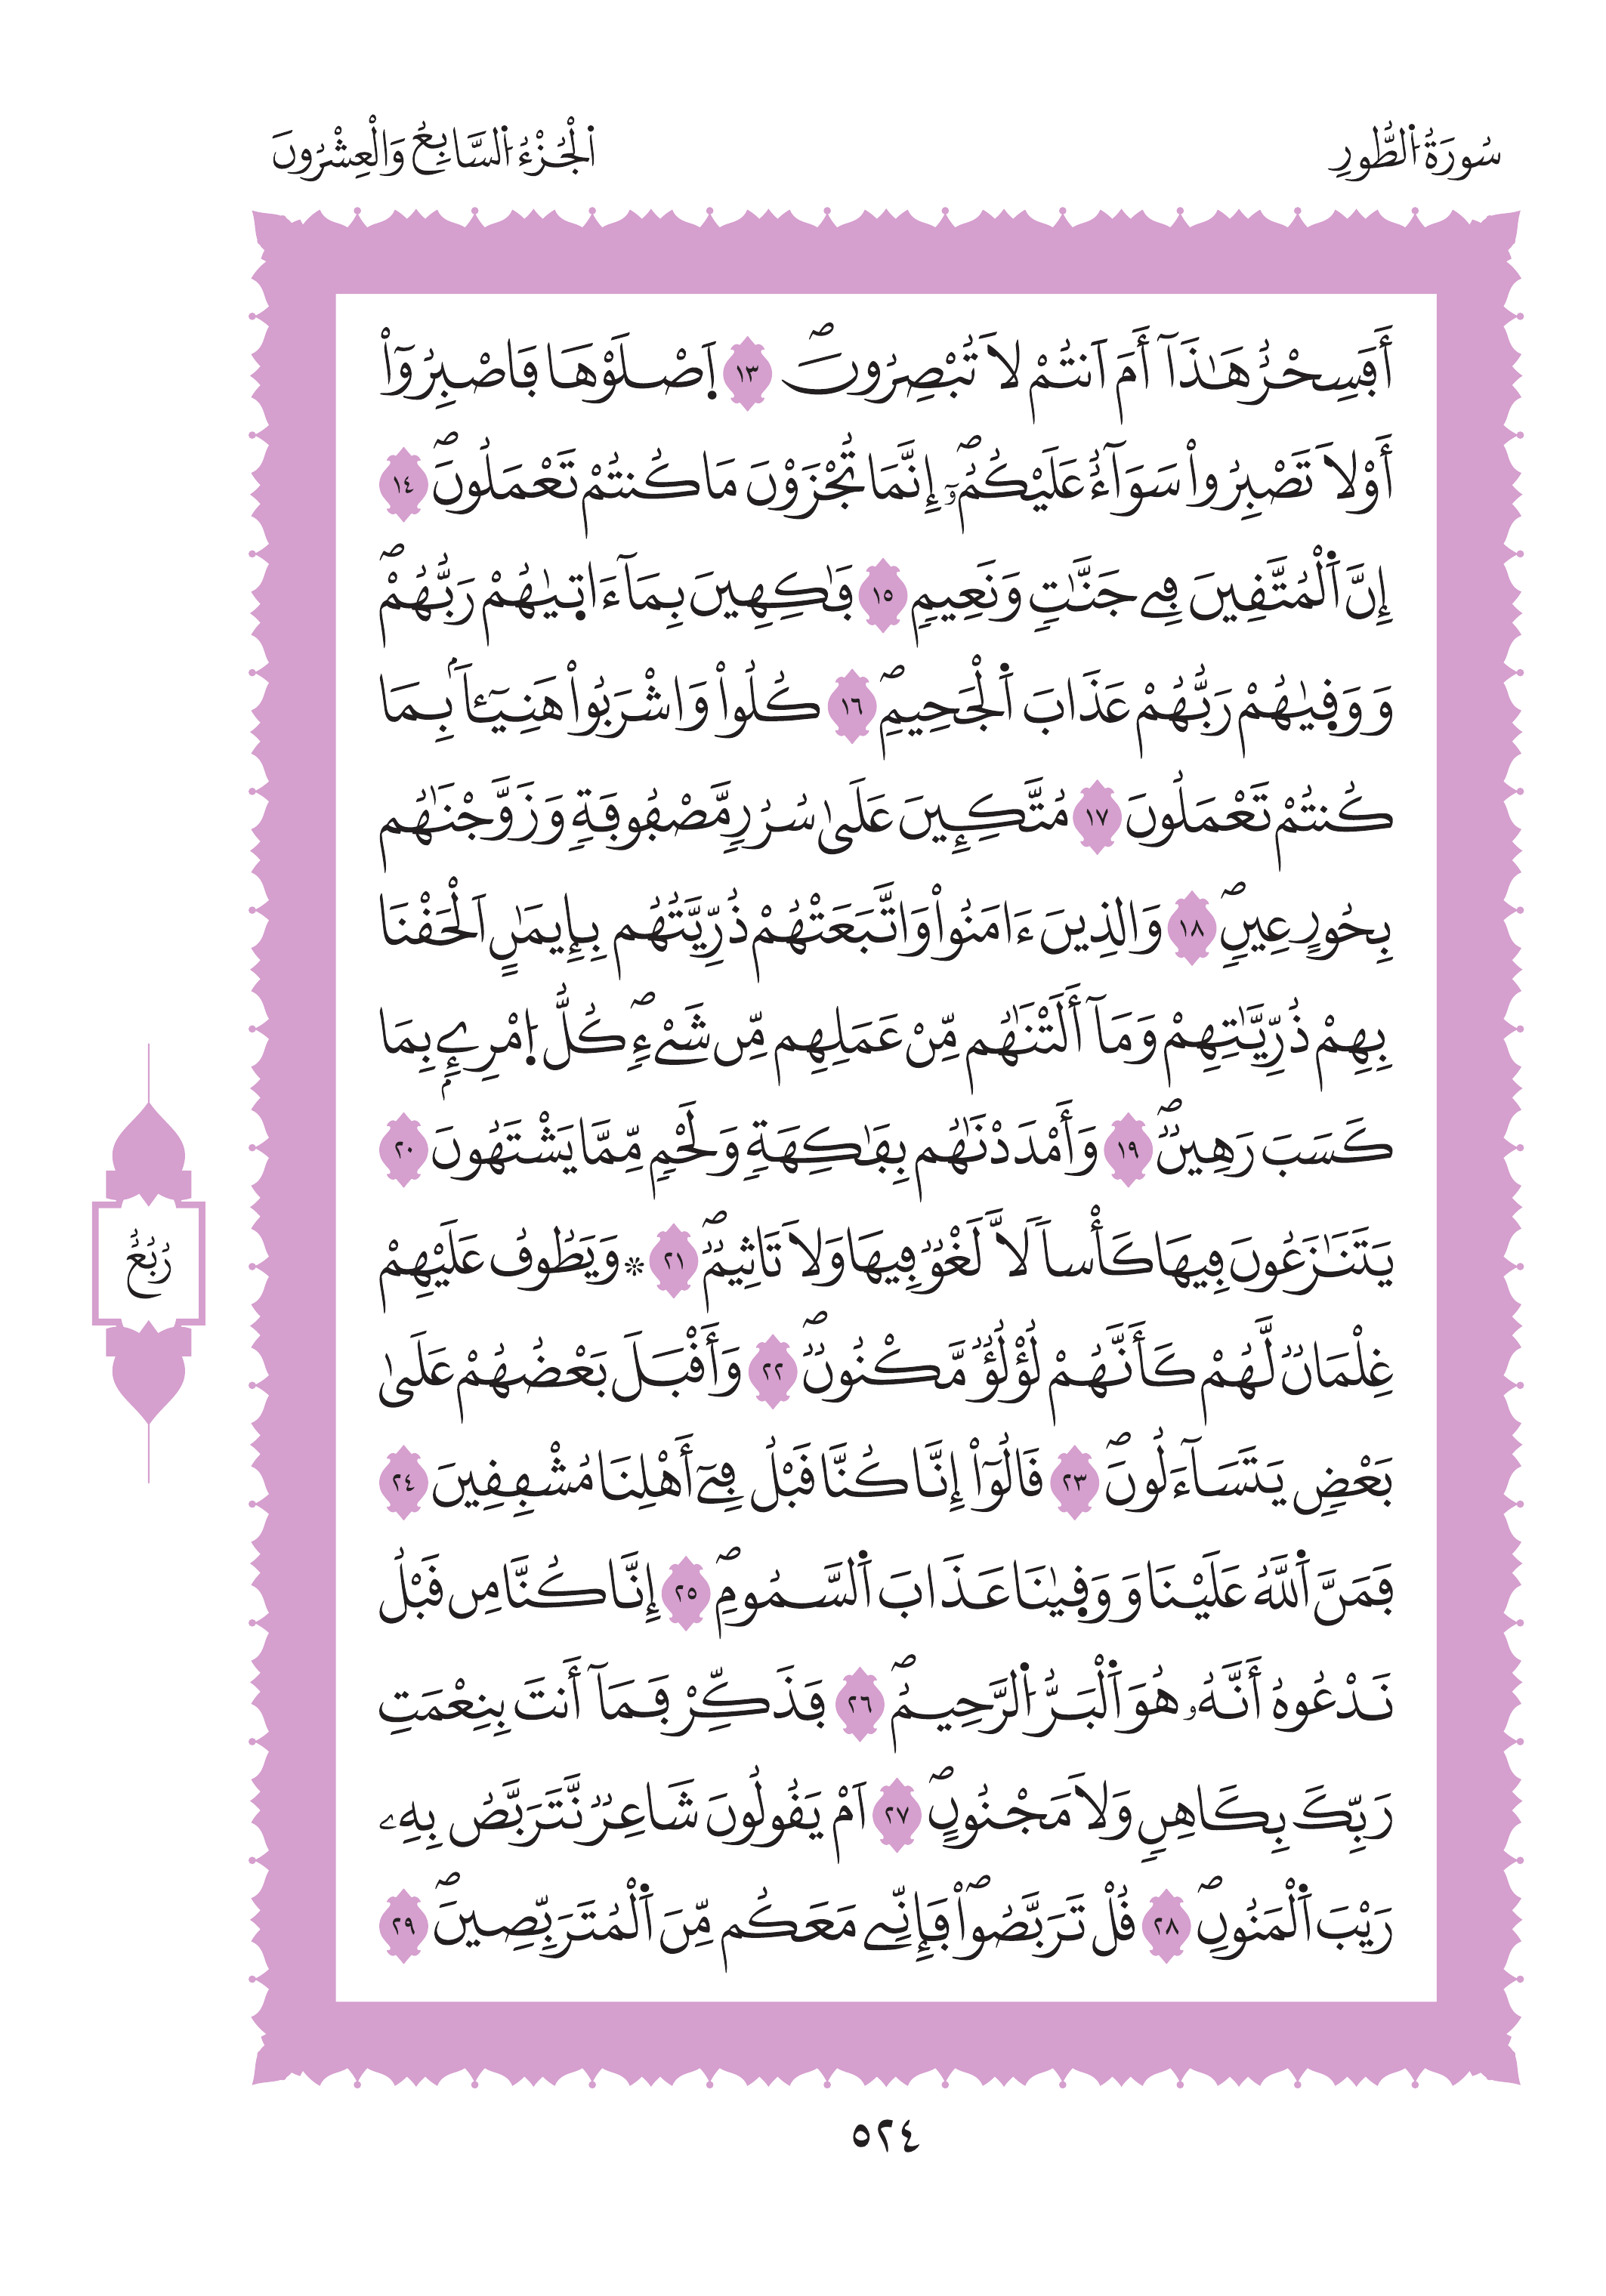 سُورَةُ الطُّورِ
الْجُزْءُ السَّابِعُ وَالْعِشْرُونَ
أَفَسِحْرٌ هَٰذَآ أَمَ اَنتُمْ لَا تُبْصِرُونَۖ ١٣ اَ۪صْلَوْهَا فَاصْبِرُوٓاْ
أَوْ لَا تَصْبِرُواْ سَوَآءٌ عَلَيْكُمُۥٓۖ إِنَّمَا تُجْزَوْنَ مَا كُنتُمْ تَعْمَلُونَۖ ١٤
إِنَّ اَ۬لْمُتَّقِينَ فِے جَنَّٰتٖ وَنَعِيمٖ ١٥ فَٰكِهِينَ بِمَآ ءَات۪يٰهُمْ رَبُّهُمْۖ
وَوَق۪يٰهُمْ رَبُّهُمْ عَذَابَ اَ۬لْجَحِيمِۖ ١٦ كُلُواْ وَاشْرَبُواْ هَنِيٓـٔاَۢ بِمَا
كُنتُمْ تَعْمَلُونَ ١٧ مُتَّكِـِٕينَ عَلَىٰ سُرُرٖ مَّصْفُوفَةٖ وَزَوَّجْنَٰهُم
بِحُورٍ عِينٖۖ ١٨ وَالذِينَ ءَامَنُواْ وَاتَّبَعَتْهُمْ ذُرِّيَّتُهُم بِإِيمَٰنٍ اَلْحَقْنَا
بِهِمْ ذُرِّيَّٰتِهِمْ وَمَآ أَلَتْنَٰهُم مِّنْ عَمَلِهِم مِّن شَےْءٖۖ كُلُّ اُ۪مْرِےِٕۢ بِمَا
كَسَبَ رَهِينٞۖ ١٩ وَأَمْدَدْنَٰهُم بِفَٰكِهَةٖ وَلَحْمٖ مِّمَّا يَشْتَهُونَ ٢٠
يَتَنَٰزَعُونَ فِيهَا كَأْساٗ لَّا لَغْوٞ فِيهَا وَلَا تَاثِيمٞۖ ٢١ ۞ وَيَطُوفُ عَلَيْهِمْ
غِلْمَانٞ لَّهُمْ كَأَنَّهُمْ لُؤْلُؤٞ مَّكْنُونٞۖ ٢٢ وَأَقْبَلَ بَعْضُهُمْ عَلَىٰ
بَعْضٖ يَتَسَآءَلُونَۖ ٢٣ قَالُوٓاْ إِنَّا كُنَّا قَبْلُ فِےٓ أَهْلِنَا مُشْفِقِينَ ٢٤
فَمَنَّ اَ۬للَّهُ عَلَيْنَا وَوَق۪يٰنَا عَذَابَ اَ۬لسَّمُومِۖ ٢٥ إِنَّا كُنَّا مِن قَبْلُ
نَدْعُوهُ أَنَّهُۥ هُوَ اَ۬لْبَرُّ اُ۬لرَّحِيمُۖ ٢٦ فَذَكِّرْ فَمَآ أَنتَ بِنِعْمَتِ
رَبِّكَ بِكَاهِنٖ وَلَا مَجْنُونٍۖ ٢٧ اَمْ يَقُولُونَ شَاعِرٞ نَّتَرَبَّصُ بِهِۦ
رَيْبَ اَ۬لْمَنُونِۖ ٢٨ قُلْ تَرَبَّصُواْۖ فَإِنِّے مَعَكُم مِّنَ اَ۬لْمُتَرَبِّصِينَۖ ٢٩
رُبُعُ
٥٢٤